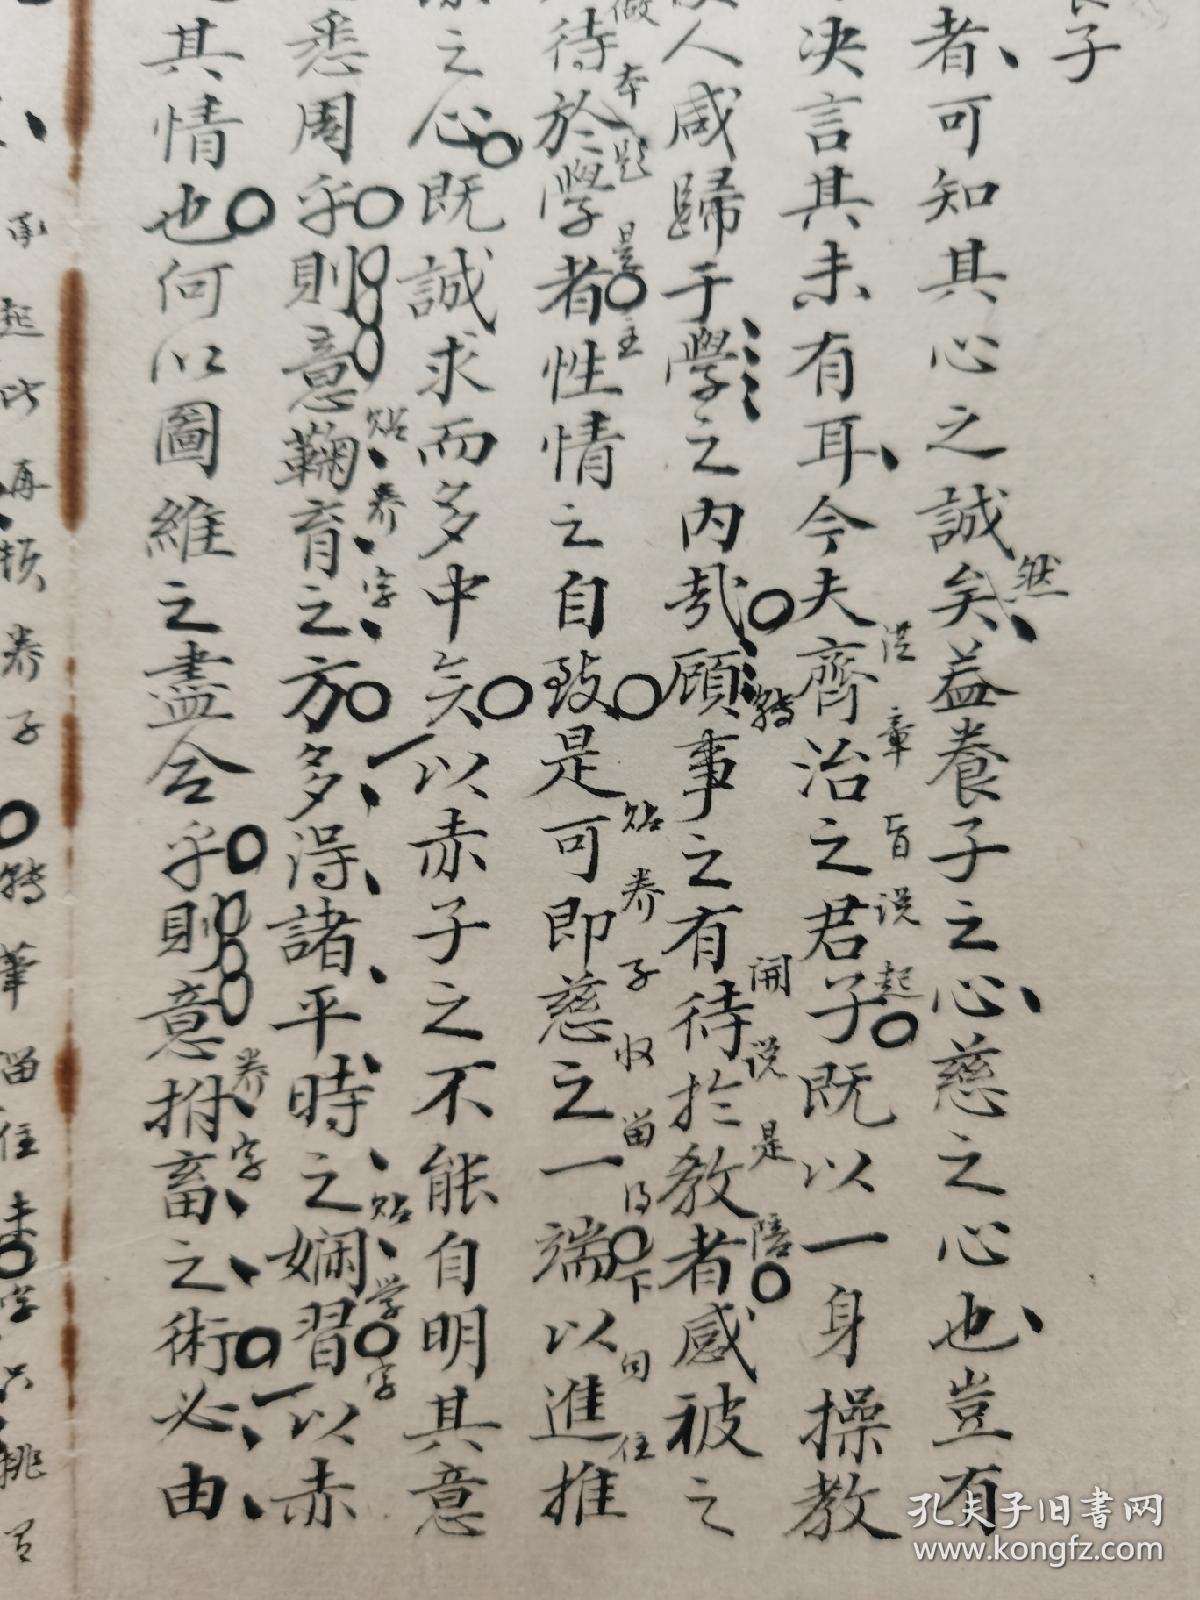 子
者可知其心之誠矣益養子之心慈之心也豈有
然
決言其未有耳今夫齊治之君子既以一身操教
章旨说起
人咸歸于學之内哉顧事之有待於教者感被之
转
開说是陪
待於學者性情之自致是可即慈之一端以進推
本题是主
贴养子收
下句住
之心既誠求而多中矣以赤子之不能自明其意
悉周乎則意鞠育之方多得諸平時之嫻習以赤
贴养字
贴学字
其情也何以圖維之盡合乎則意拊畜之術必由
养字
承起此再
养子
转筆留住
孔夫子旧书网
www.kongfz.com